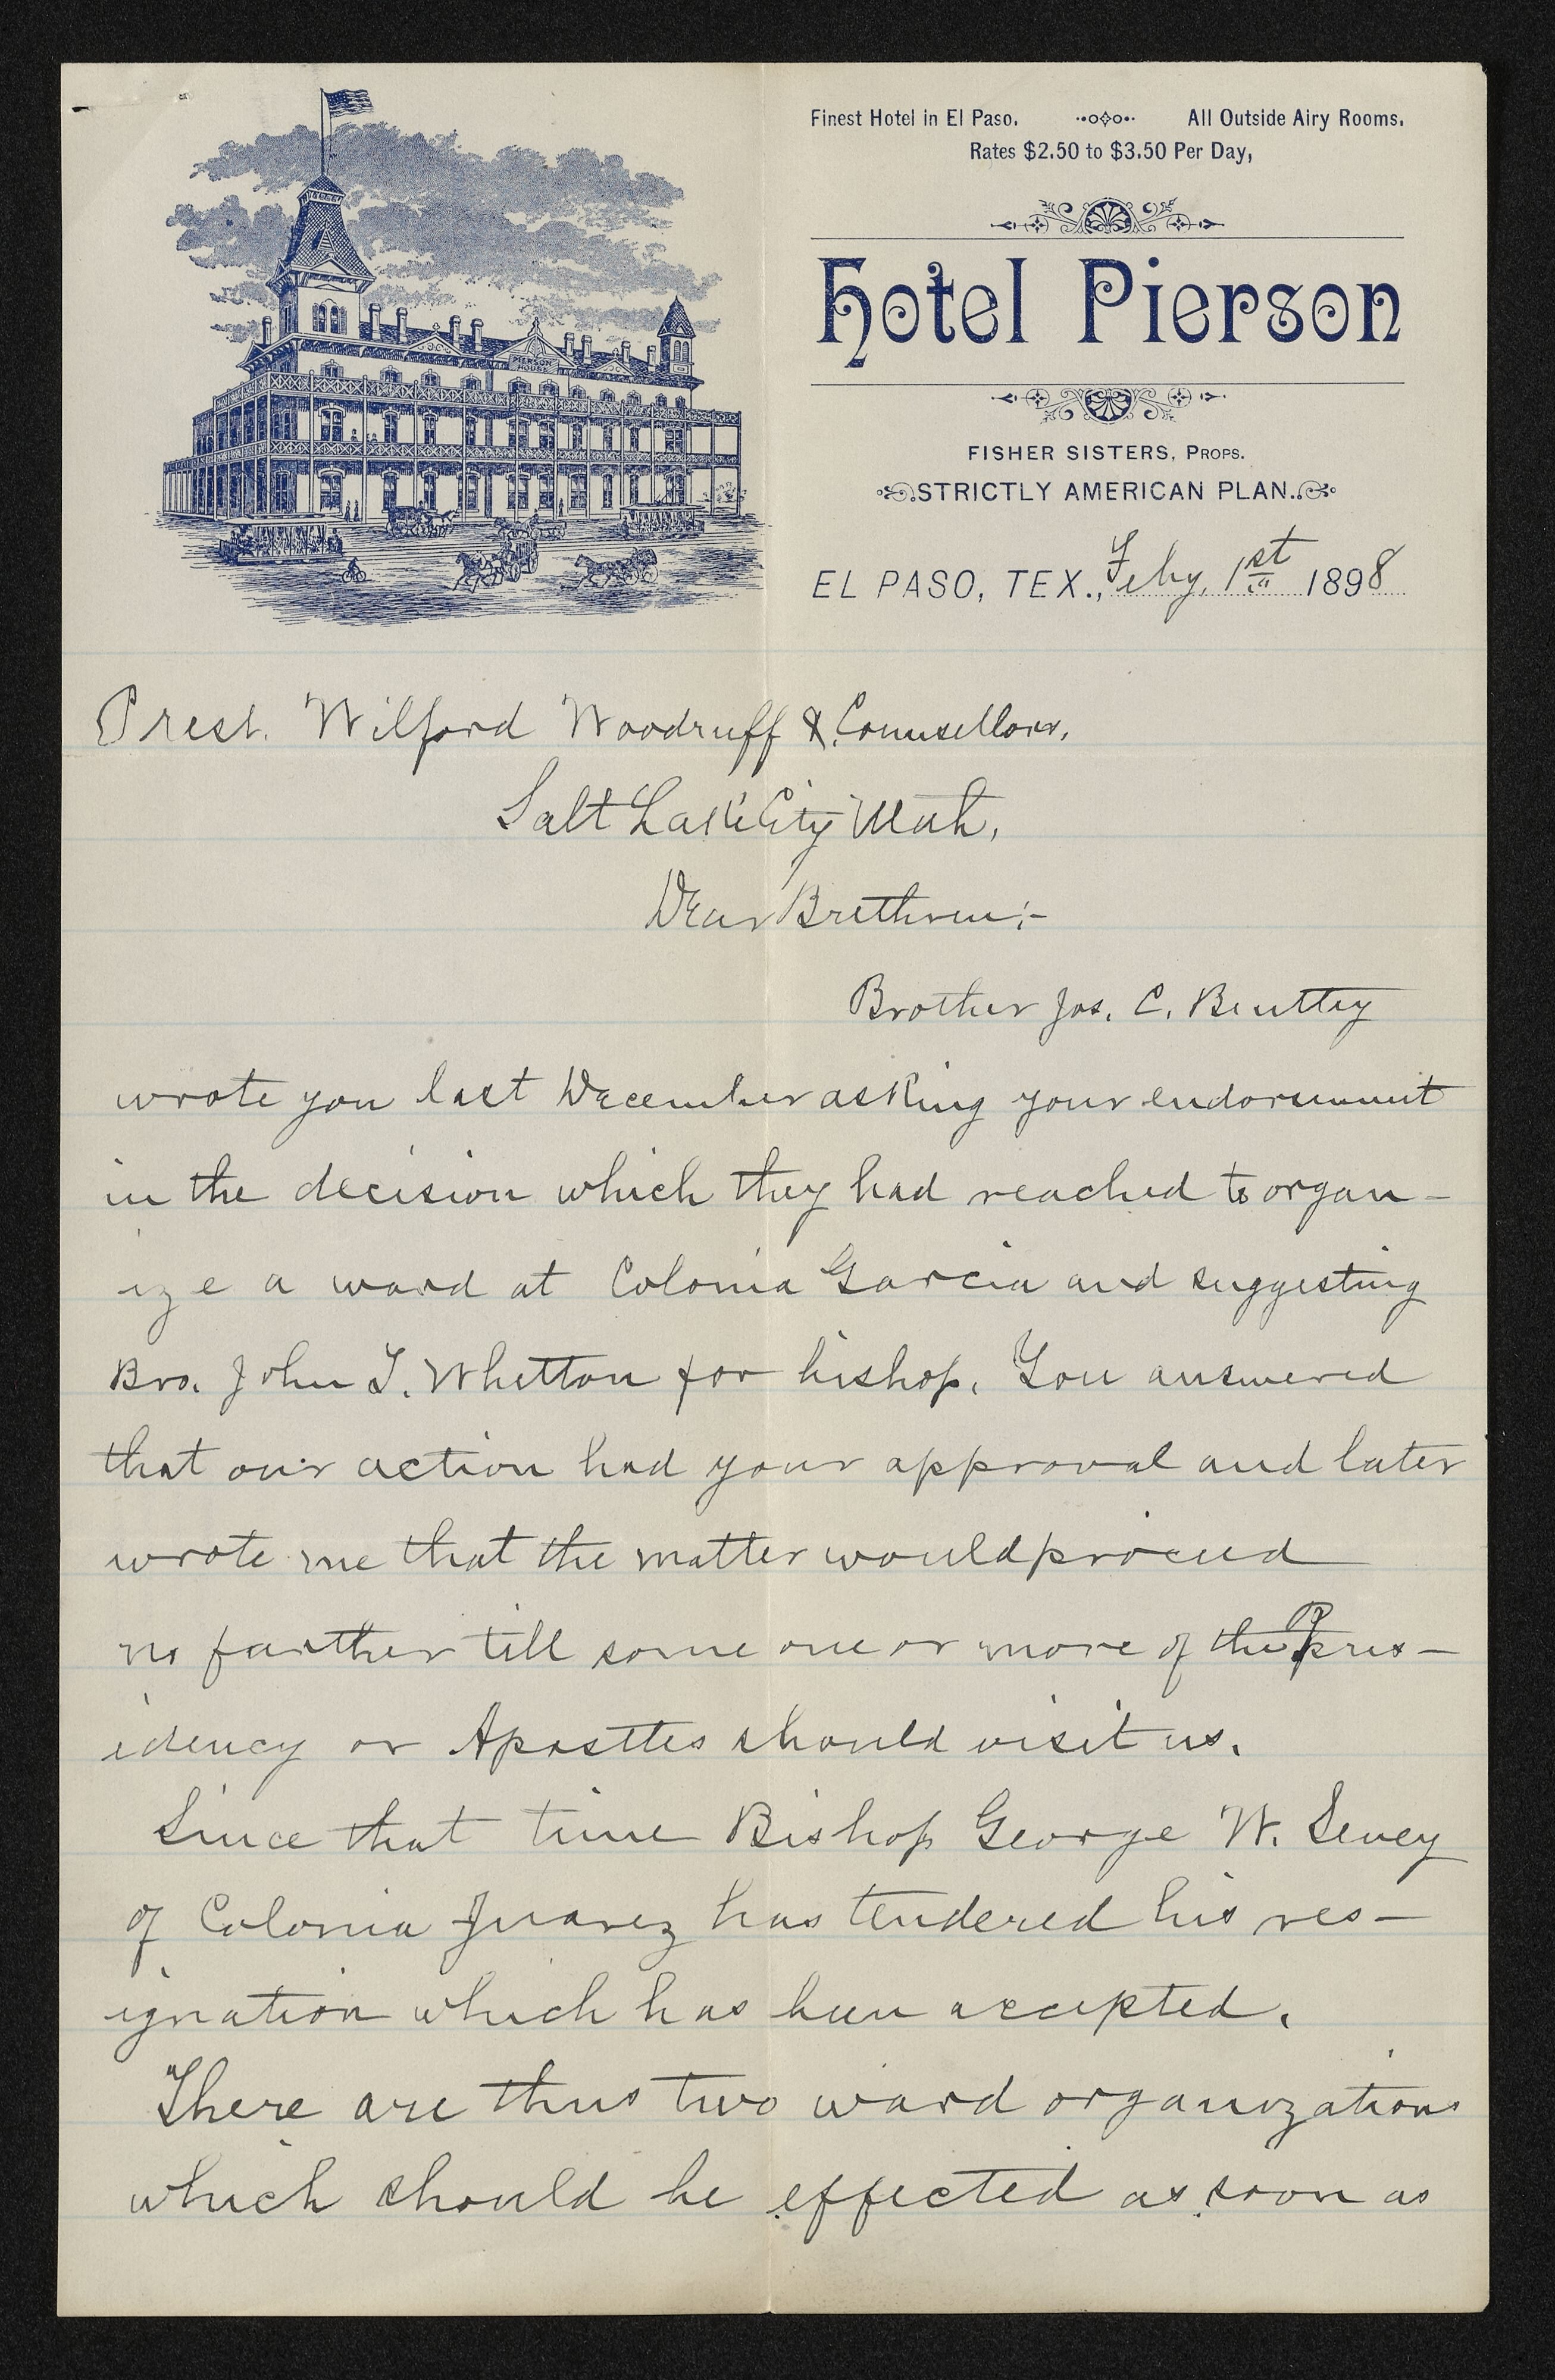 Finest Hotel in El Paso. All Outside Airy Rooms.
Rates $2.50 to $3.50 Per Day,
Hotel Pierson
PIERSON
HOUSE
FISHER SISTERS, PROPS.
STRICTLY AMERICAN PLAN.
EL PASO, TEX., Feby. 1st 1898
Prest. Wilford Woodruff & Counsellors,
Salt Lake City Utah,
Dear Brethren:-
Brother Jos. C. Bentley
wrote you last December asking your endorsement
in the decision which they had reached to organ-
ize a ward at Colonia Garcia and suggesting
Bro. John T. Whetton for bishop. You answered
that our action had your approval and later
wrote me that the matter would proceed
no farther till some one or more of the Pres-
idency or Apostles should visit us.
Since that time Bishop George W. Sevey
of Colonia Juarez has tendered his res-
ignation which has been accepted.
There are thus two ward organizations
which should be effected as soon as